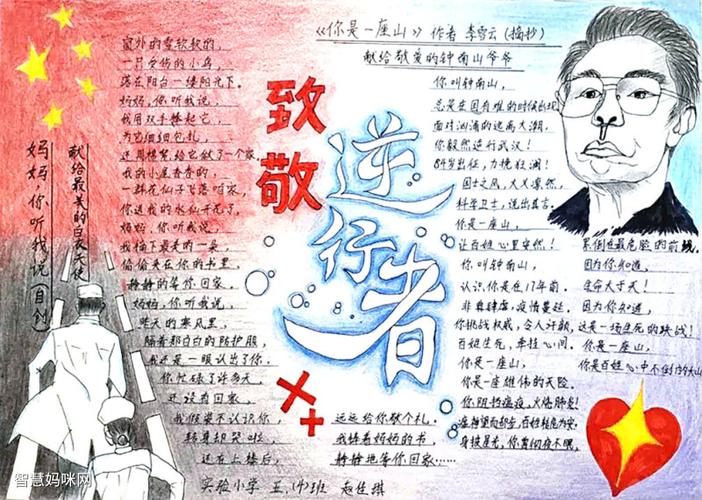 《你是一座山》作者 李雪云(摘抄)
献给敬爱的钟南山爷爷
致敬
逆行者
献给最美的白衣天使
妈妈,你听我说(自创)
窗外的雪软软的,
一只受伤的小鸟,
落在阳台一缕阳光下。
妈妈,你听我说,
我用双手捧起它,
为它细细包扎,
还用棉絮给它做了一个家,
我的小屋香香的,
一群花仙子飞落咱家,
你送我的水仙开花了,
妈妈,你听我说,
我摘下最美的一朵,
偷偷夹在你的书里,
静静的等你回家。
妈妈,你听我说,
昨天的寒风里,
隔着那白白的防护服,
我还是一眼认出了你,
你忙碌了许多天,
还没有回家,
我假装不认识你,
转身却哭啦,
还在上楼后,
远远给你敬个礼。
我捧着妈妈的书,
静静地等你回家……
你叫钟南山,
总是在国有难的时候出现
面对汹涌的返高大潮,
你毅然逆行武汉!
84岁出征,力挽狂澜!
国士之风,大义凛然,
科学卫士,说出真言。
你是一座山,
让百姓心里安然!
你叫钟南山,
认识你是在17年前。
非典肆虐,疫情蔓延。
你挑战权威,令人汗颜,
百姓生死,牵挂心间。
你是一座山,
你是一座雄伟的天险。
你阻挡瘟疫,火烙肺炎!
身披星光,你贯彻夜不眠,
累倒在最危险的前线。
因为你知道,
生命大于天!
因为你知道,
这是一场生死的决战!
你是一座山,
你是百姓心中不倒的大山
实验小学 五.(4)班 赵佳琪
智慧妈咪网